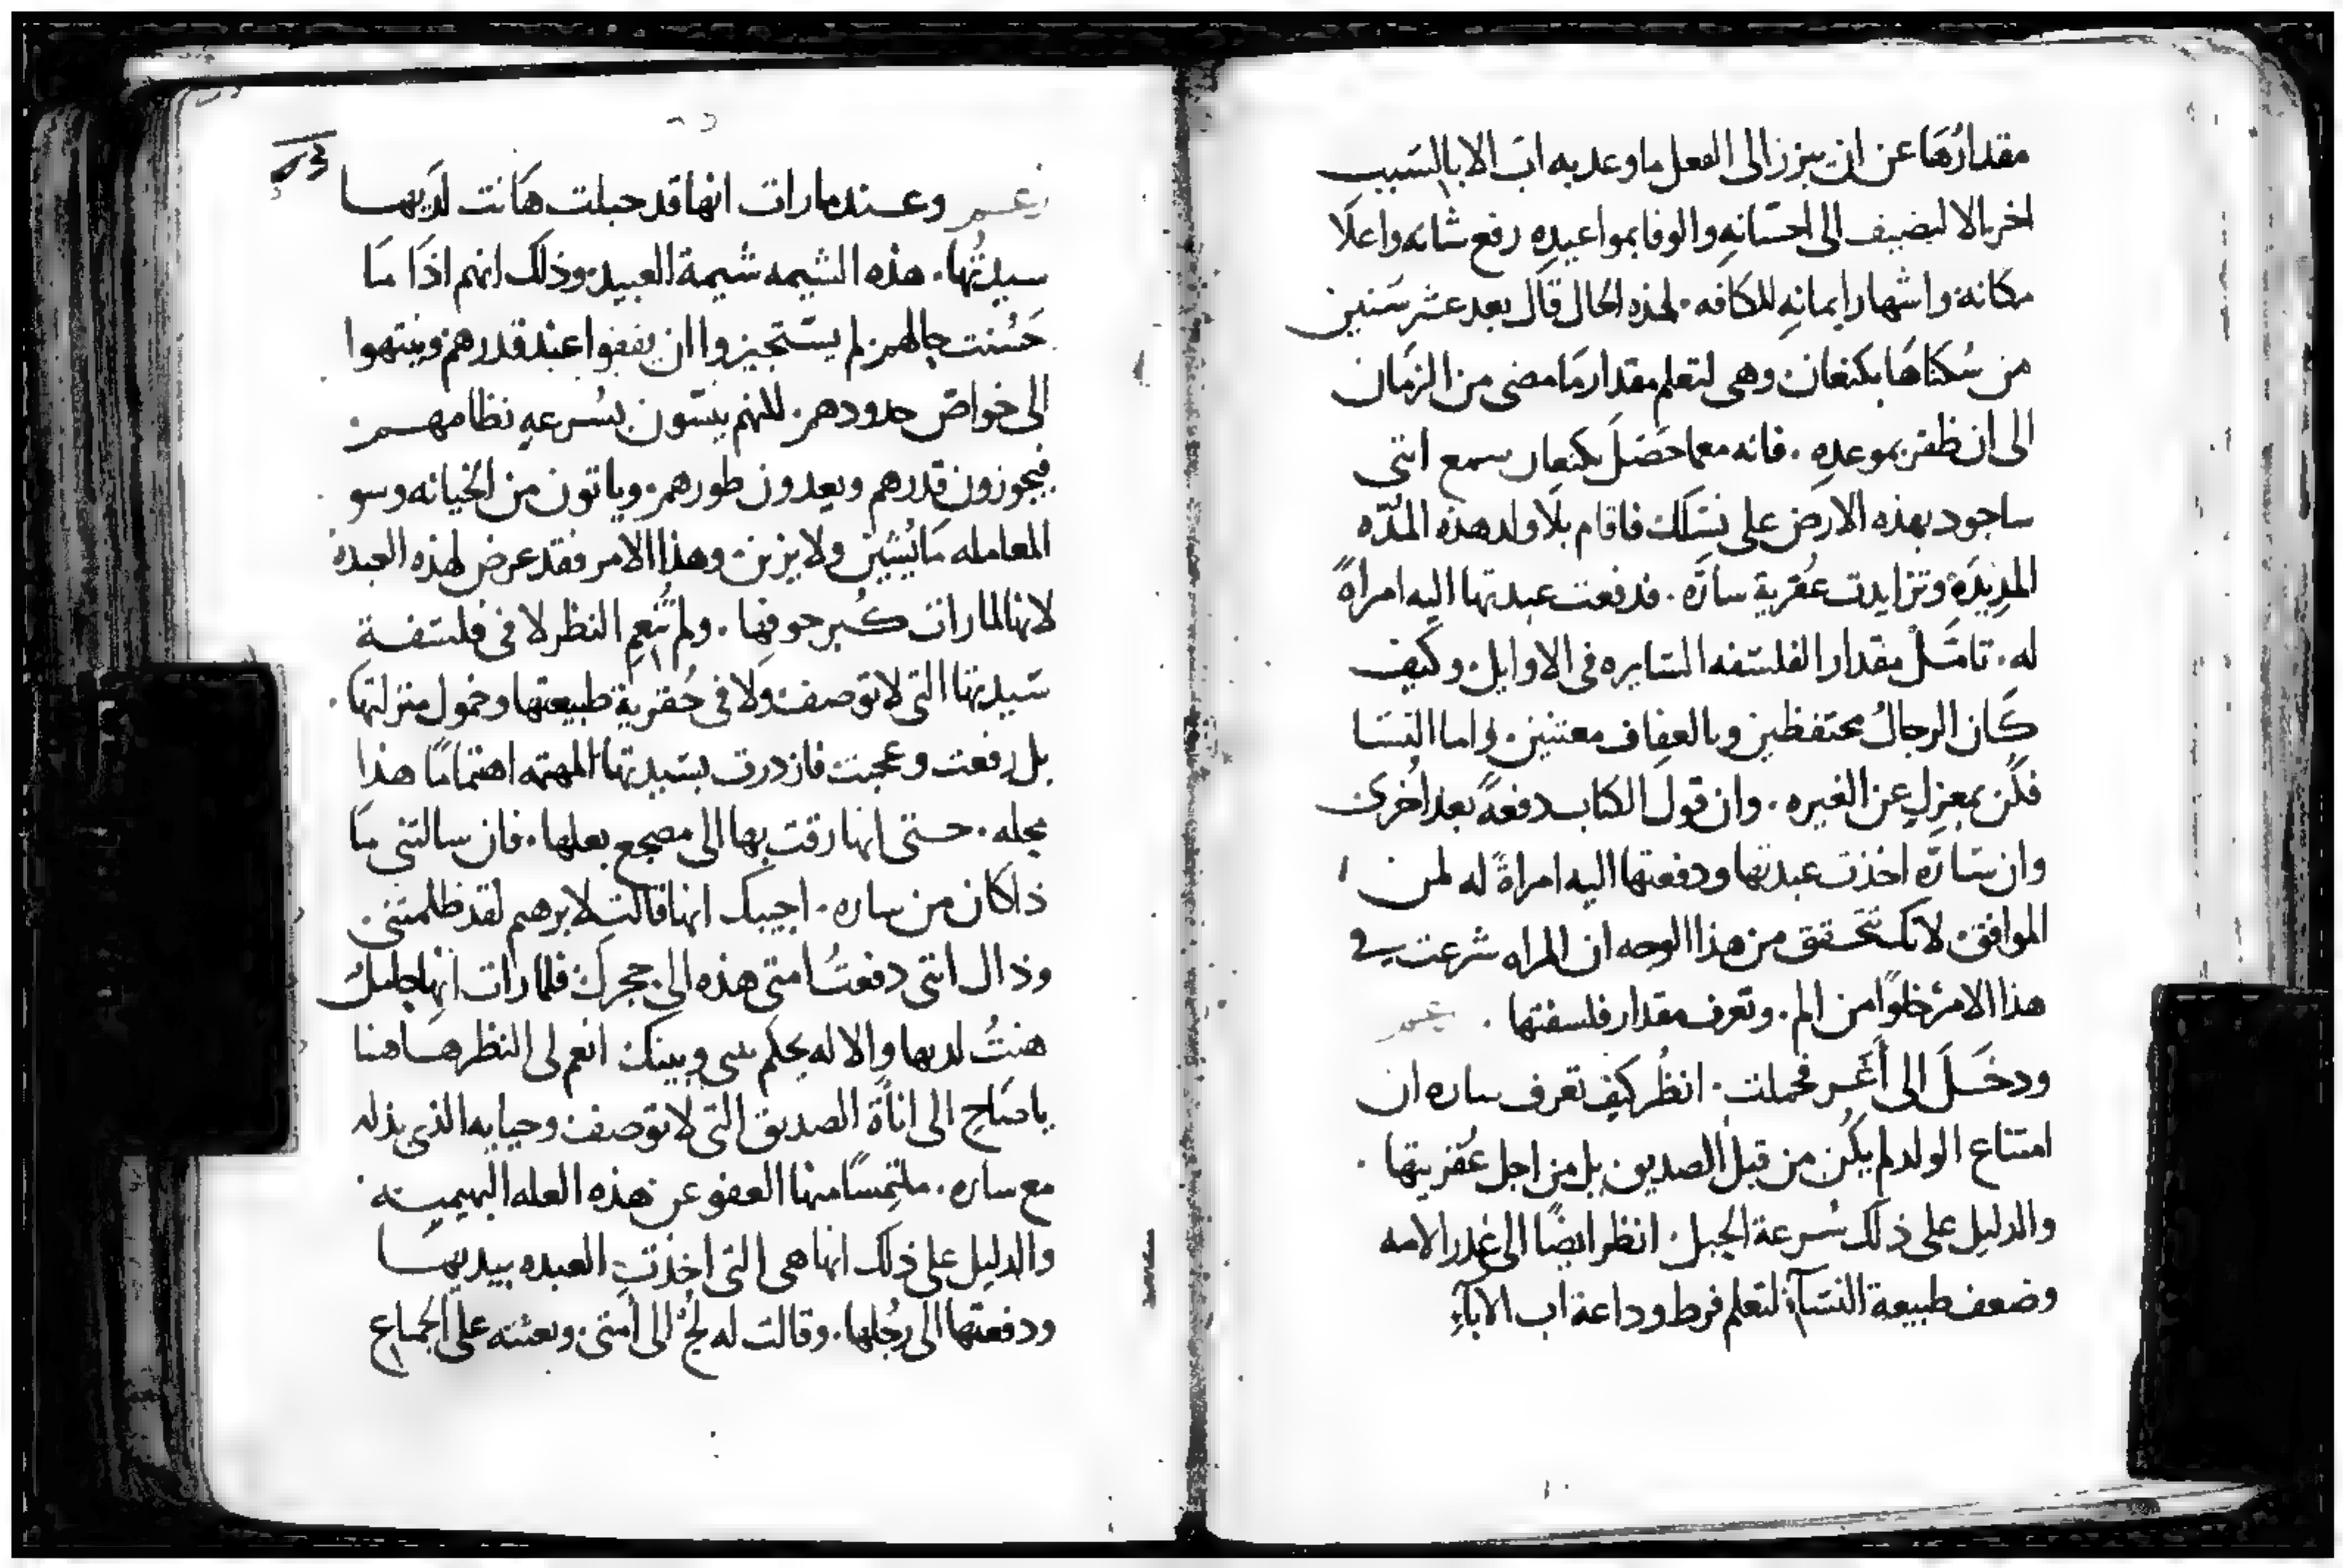 مقدارُهَا عن ان يبرز الى الفعل ما وعد به اب الابا لسَبب
اخر الا ليضيف الى احسَانهِ والوفا بمواعيدِهِ رفع شانه واعلَا
مكانهُ واشهار ايمانهِ للكافه. لهذه الحال قال بعد عشر سَنين
من سُكناهَا بكنعان وهى لتعلم مقدار مَا مضى من الزمَان
الى ان ظفر بموعدِهِ. فانه معما حَصَلَ بكنعان سمع انى
ساجود بهذه الارض على نسَلك فاقام بلَا ولد هذه المدّه
المديدَةِ وتزايدت عُقرية سارّه. فدفعت عبدتها اليه امراةً
له. تامَّلْ مقدار الفلسَفه السَايره فى الاوايل. وكيف
كَان الرجالُ محتفظين وبالعفِاف معتنين. واما النسَا
فلُكن بمعزلٍ عن الغيره. وان قول الكتاب دفعةً بعد اخرىَ
وان سَارّه اخذت عبدتها ودفعتها اليه امراةً له لمن
الموافق. لانك تتحَقق من هذا الوجه ان المراه شرعت فى
هذا الامرْ خلوًا من الم. وتعرف مقدار فلسفتها.
ودخَلَ الى أغَر فحملت. انظُر كيف تعرف ساره ان
امتناع الولد لم يكُن من قبل الصديق بل من اجل عُقريتها.
والدليل على ذلك سُرعة الحبل. انظر ايضًا الى غدر الامه
وضعف طبيعة النسَآءِ لتعلم فرط وداعة اب الابآءِ
43
وعندما رات انها قد حبلت هَانت لدَيها
سيدتُها. هذه الشيمه شيمة العبيد. وذلك انهم اذَا مَا
حَسُنت حالهم. لم يسَتجيزوا ان يقفوا عندَ قدرهم وينتهوا
الى خواصّ حدودهم. لكنهم ينسَون بسُرعهٍ نظامهم.
فيجوزون قدرهم ويعدون طورهم. وياتون من الخيانه وسو
المعامله مَا يُشين ولا يزين. وهذا الامر فقد عرض لهذه العبدة
لانها لما رات كُبر جوفهِا. ولم تُنعمِ النظر لا فى فلسَفة
سَيدتها التى لا توصف. ولا فى حُقرية طبيعتها وخمول منزلتها.
بل رفعت وعجبت فازدرت بسَيدتها المهتمه اهتمامًا هذا
محله. حتى انها رقت بها الى مضجع بعلها. فان سالتنى مَا
ذا كان من ساره. اجيبك انها قالت لابرهيم لقد ظلمتنى.
وذا ال اننى دفعتُ امتى هذه الى حجرك فلما رات انها حاملٌ
هنتُ لديها والاله يحكم بينى وبينك. انعم لى النظر هَاهنا
ياصَاحِ الى اناةَ الصديق التى لا توصف. وحيايه الذى بذله
مع ساره. ملتمِسًا منها العفو عن هذه العله البهيميه
والدليل على ذلك انها هى التى اخذتِ العبده بيديهَا
ودفعتها الى رجُلها. وقالت له لُجْ الى أمتى. وبعثته على الجماع